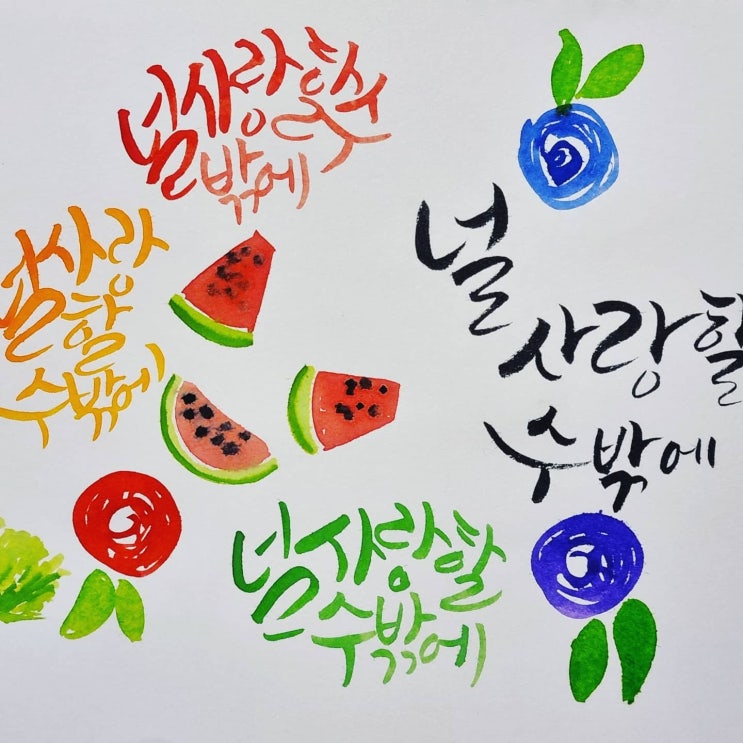 널사랑할수
밖에
널사랑
할
수밖에
널
사랑할
수밖에
널사랑할
수밖에